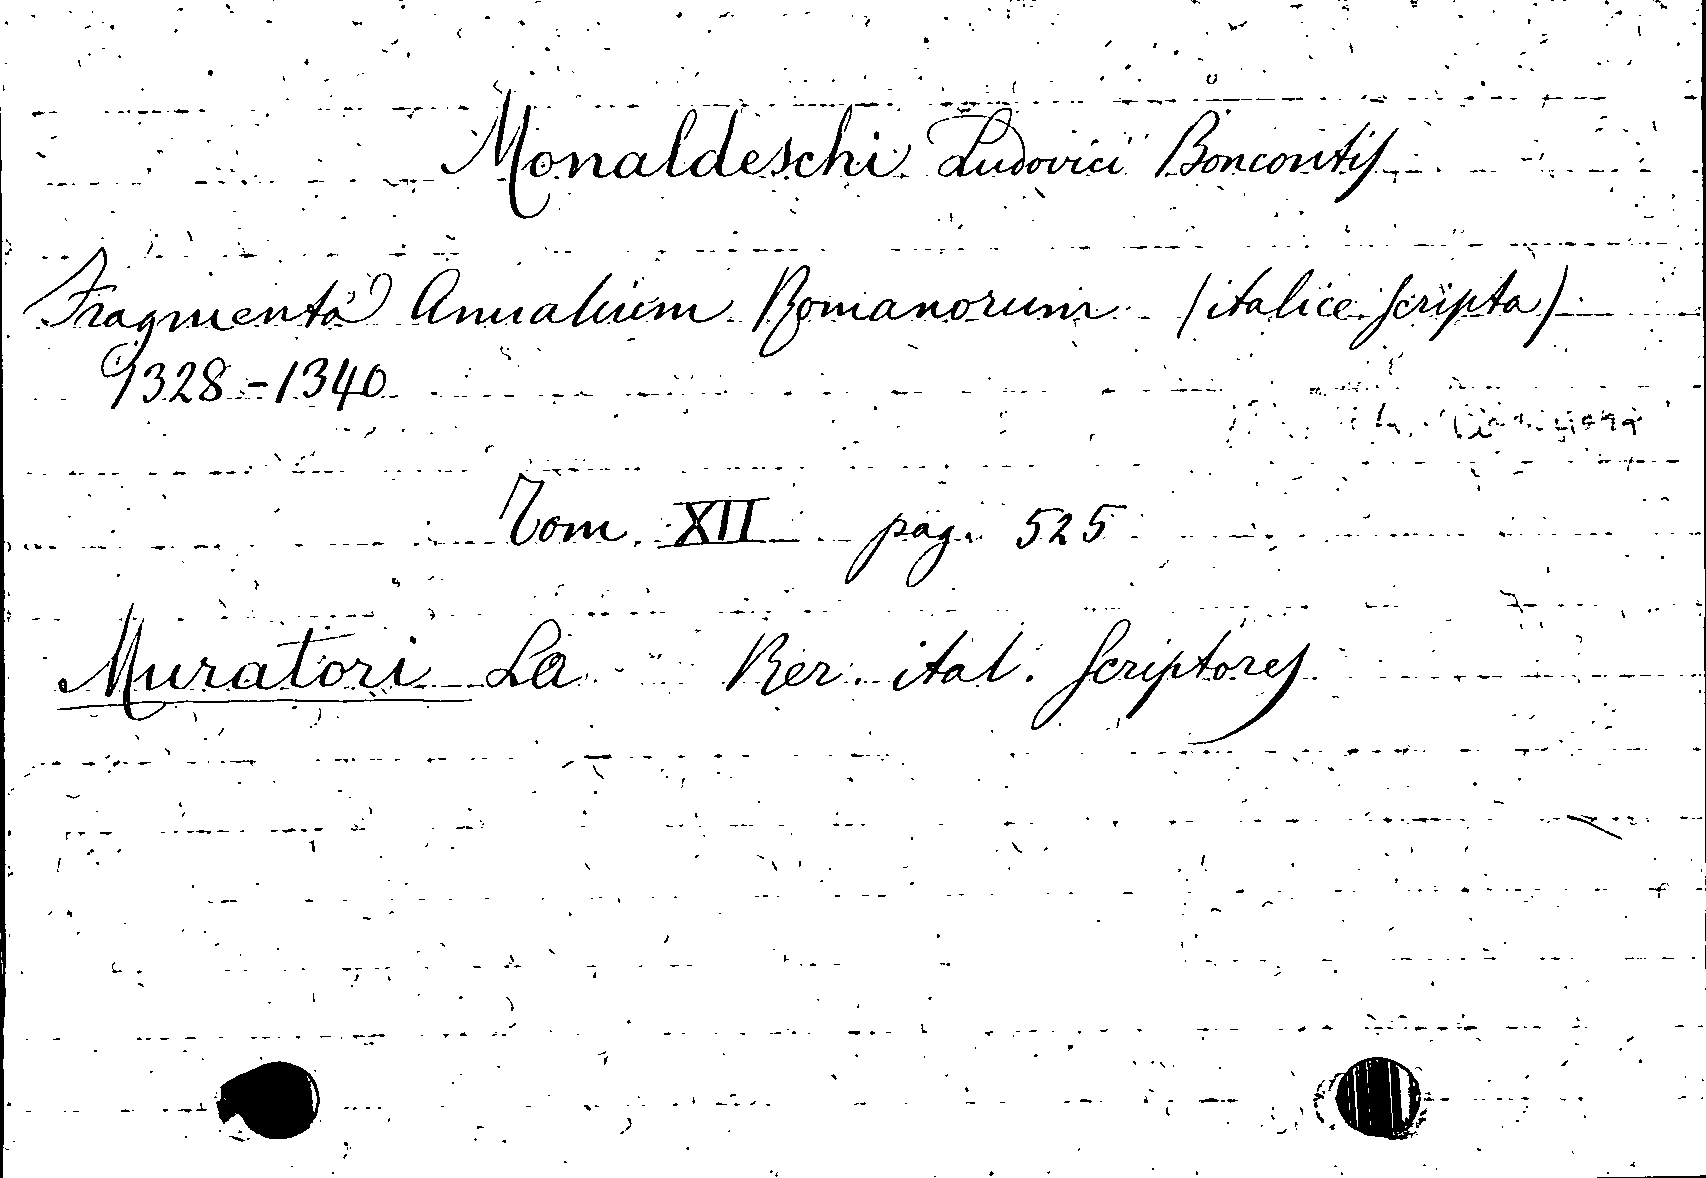 Monaldeschi Ludovici Boncontis
Fragmenta Annalium Romanorum (italice scripta)
1328-1340
Tom. XII pag. 525
Muratori La Rer. ital. Scriptores